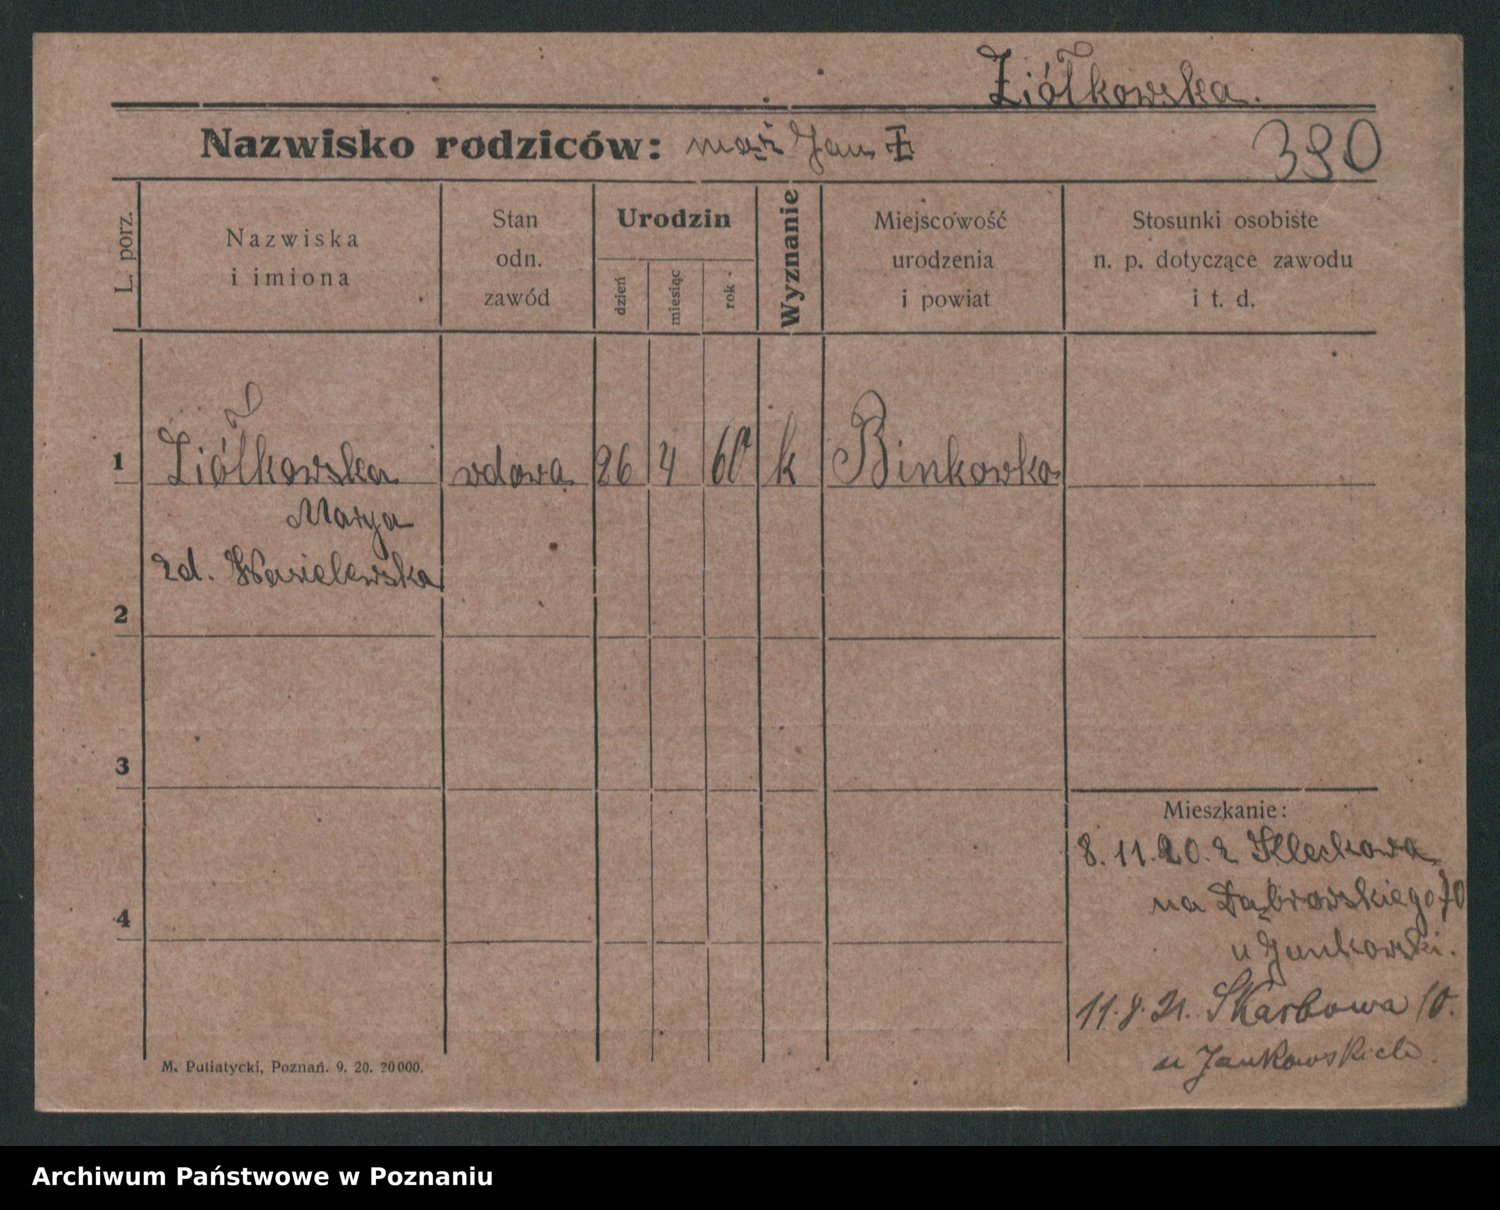 Ziółkowska.
Nazwisko rodziców: mąż Jan Z
390
L. porz.
Nazwiska
i imiona
Stan
odn.
zawód
Urodzin
dzień
miesiąc
rok
Wyznanie
Miejscowość
urodzenia
i powiat
Stosunki osobiste
n. p. dotyczące zawodu
i t. d.
1 Ziółkowska wdowa 26 4 60 k Binkowko
Marya
zd. Wasielewska
2
3
4
Mieszkanie:
8.11.20. z Kleckowa
na Dąbrowskiego 70
u Jankowski.
11.8.21. Skarbowa 10.
u Jankowskich.
M. Putiatycki, Poznań. 9. 20. 20000.
Archiwum Państwowe w Poznaniu